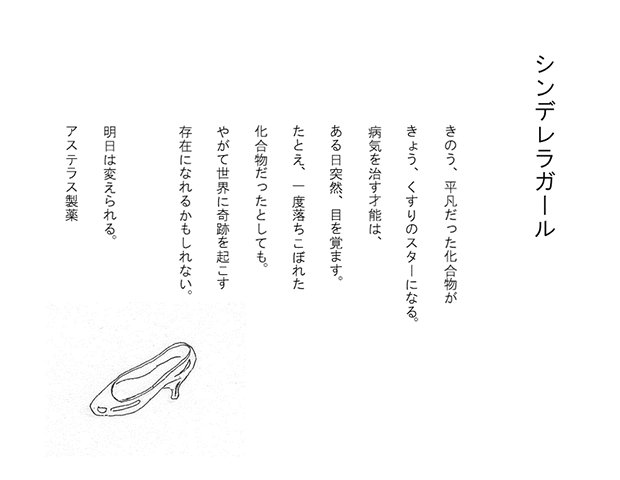 シンデレラガール
きのう、平凡だった化合物が
きょう、くすりのスターになる。
病気を治す才能は、
ある日突然、目を覚ます。
たとえ、一度落ちこぼれた
化合物だったとしても。
やがて世界に奇跡を起こす
存在になれるかもしれない。
明日は変えられる。
アステラス製薬